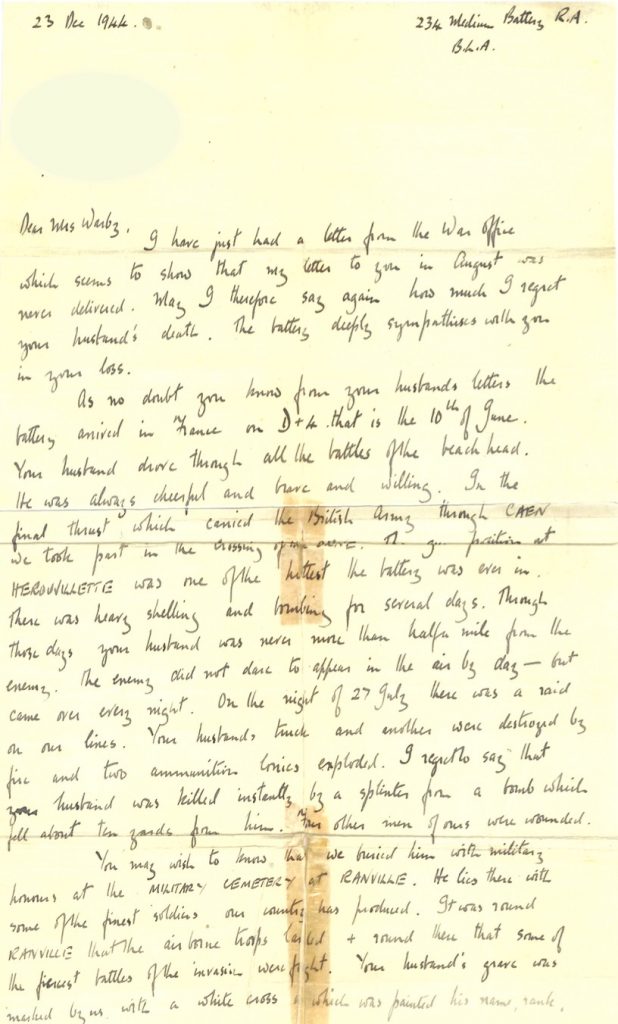 23 Dec 1944.
234 Medium Battery R.A.
B.L.A.
Dear Mrs Warby,
I have just had a letter from the War office
which seems to show that my letter to you in August was
never delivered. May I therefore say again how much I regret
your husband's death. The battery deeply sympathises with you
in your loss.
As no doubt you know from your husbands letters the
battery arrived in France on D+4. that is the 10th of June.
Your husband drove through all the battles of the beach head.
He was always cheerful and brave and willing. In the
final thrust which carried the British Army through CAEN
we took part in the crossing of position at
HEROUVILLETTE was one of the hottest the battery was ever in.
There was heavy shelling and bombing for several days. Through
those days your husband was never more than half a mile from the
enemy. The enemy did not dare to appear in the air by day — but
came over every night. On the night of 27 July there was a raid
on our lines. Your husbands truck and another were destroyed by
fire and two ammunition lorries exploded. I regret to say that
your husband was killed instantly by a splinter from a bomb which
fell about ten yards from him. Four other men of ours were wounded.
You may wish to know that we buried him with military
honours at the MILITARY CEMETERY at RANVILLE. He lies there with
some of the finest soldiers our country has produced. It was round
RANVILLE that the airborne troops landed + round there that some of
the fiercest battles of the invasion were fought. Your husband's grave was
marked by us with a white cross which was painted his name, rank,